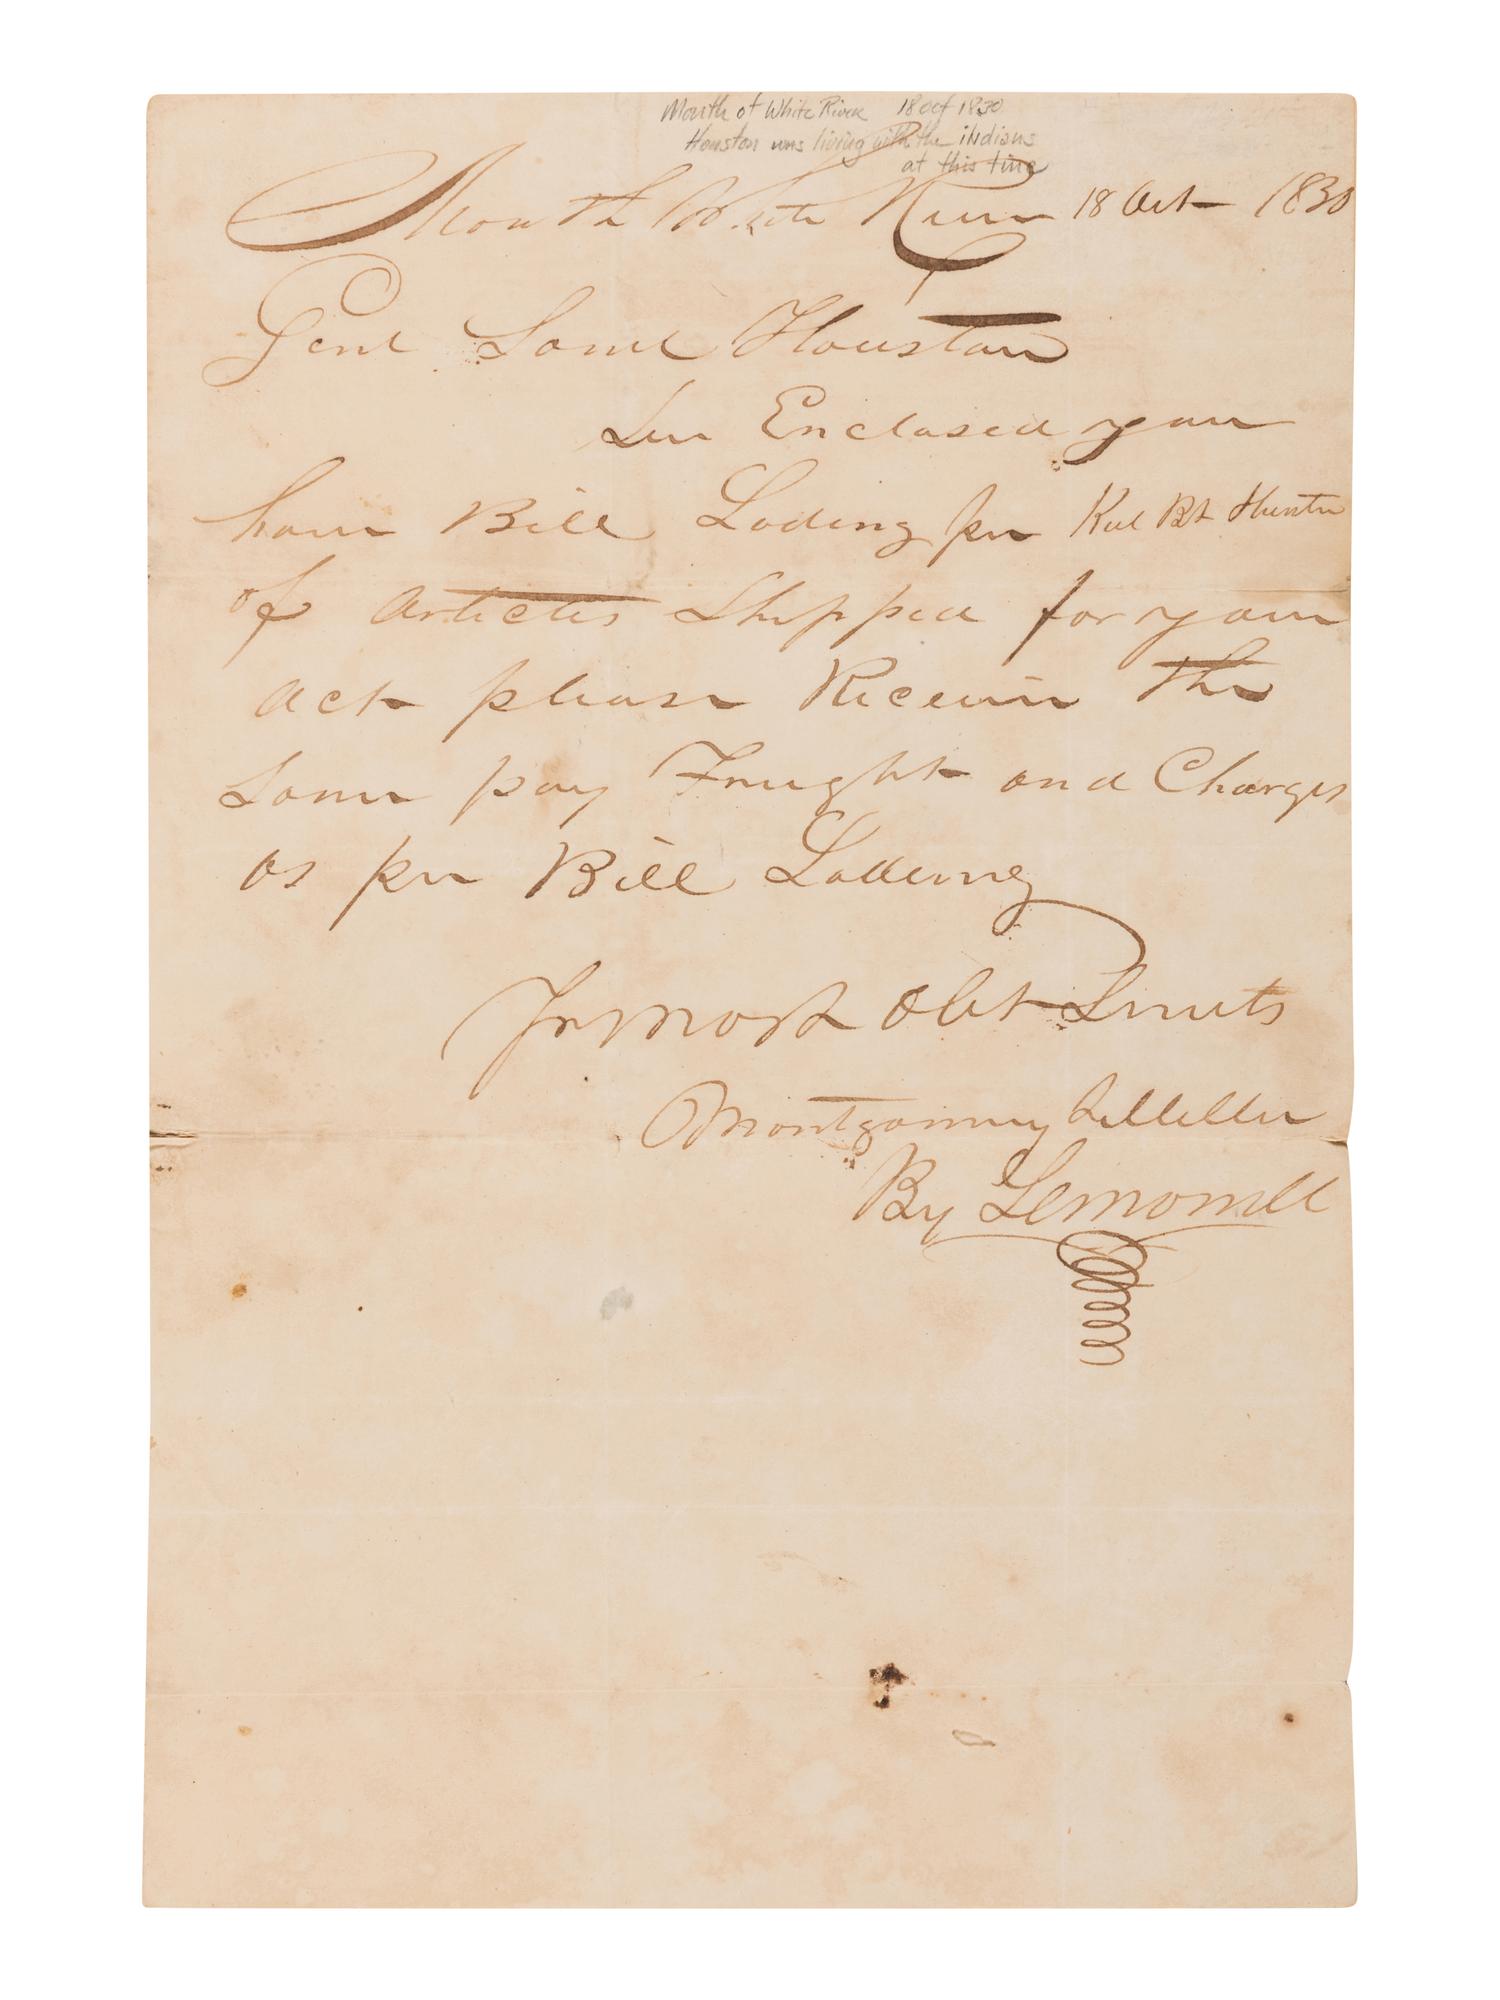 Mouth of White River 18 Oct 1830
Houston was living with the indians
at this time
Mouth White River 18 Oct 1830
Genl Saml Houston
Sir Enclosed you
have Bill Lading per Keel Bt Hunter
of Articles Shipped for your
Act please Receive the
Same pay Freight and Charges
as per Bill Lading
Yr most Obt Servts
Montgomery
By